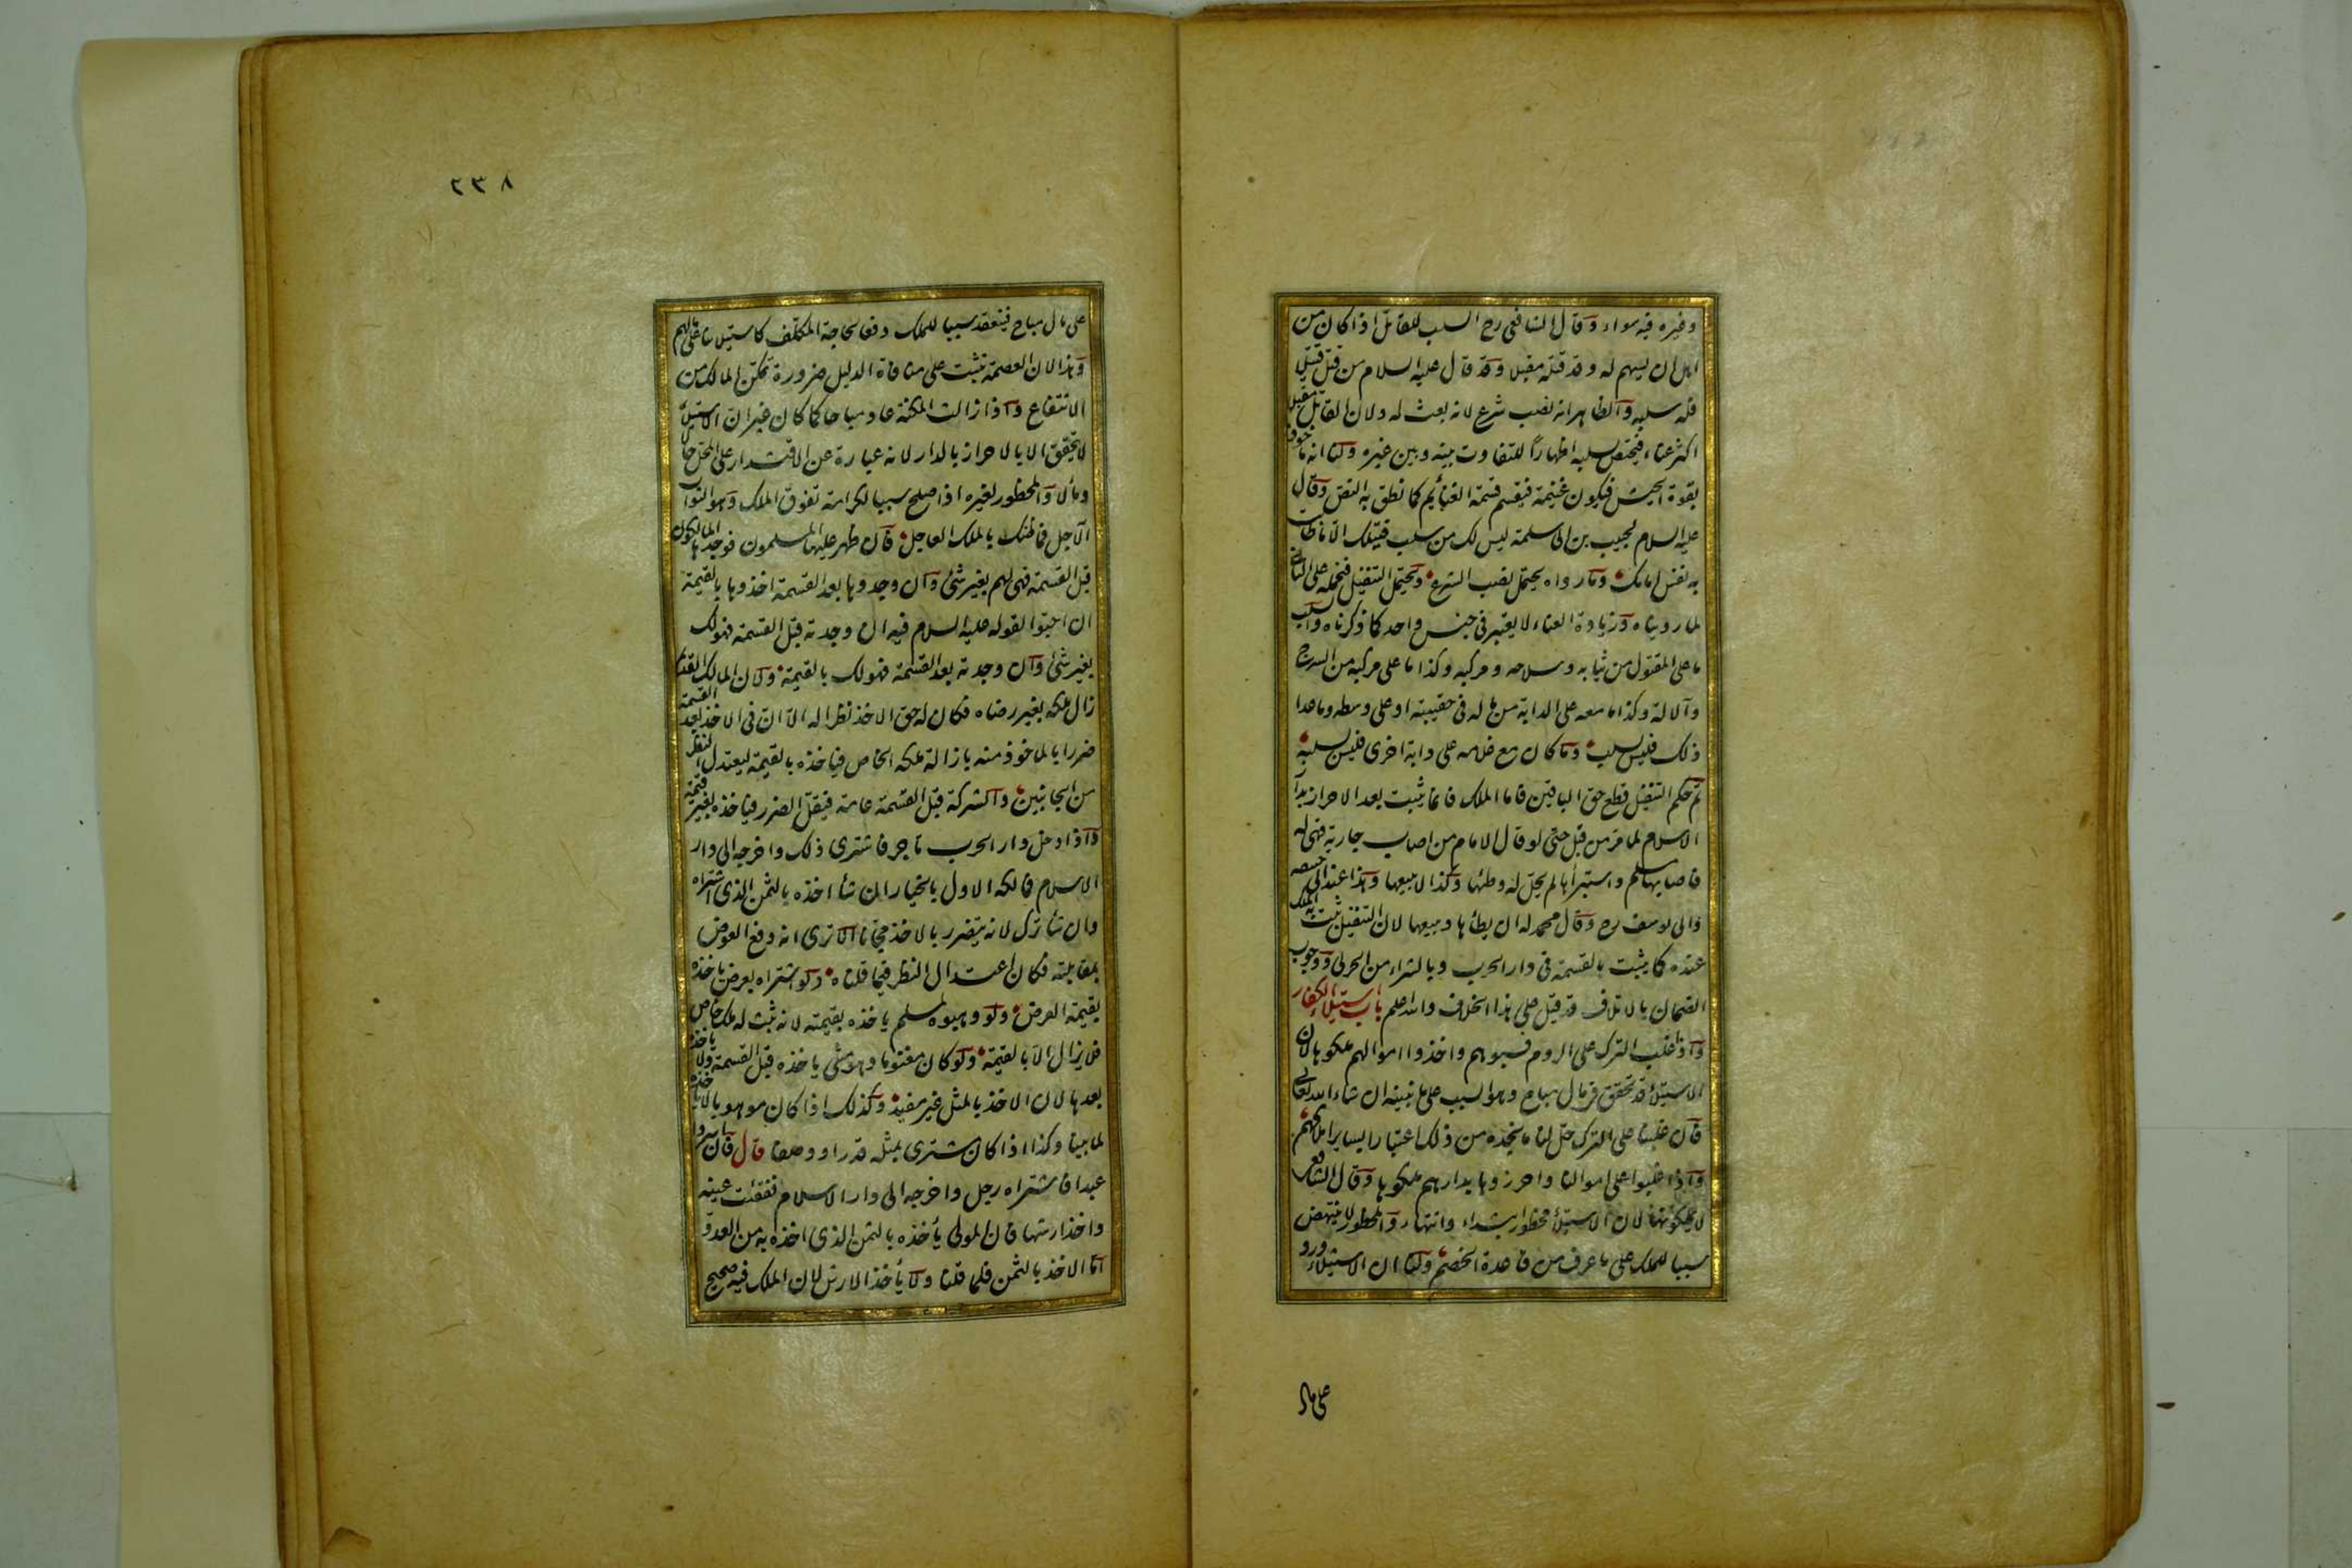 وغيره فيه سواء وقال الشافعي رح السلب للقاتل اذا كان من
اهل ان يسهم له وقد قتله مقبلا وقد قال عليه السلام من قتل قتيلا
فله سلبه والظاهر انه نصب شرع لانه بعث له ولان القاتل مقبلا
اكثر عناء فيختص بسلبه اظهارا للتفاوت بينه وبين غيره ولنا انه ماخوذ
بقوة الجيش فيكون غنيمة فيقسم قسمة الغنايم كما نطق به النص وقال
عليه السلام لحبيب بن ابي سلمة ليس لك من سلب قتيلك الا ما طابت
به نفس امامك وما رواه يحتمل نصب الشرع ويحتمل التنفيل فنحمله على الثاني
لما رويناه وزيادة العناء لا يعتبر في جنس واحد كما ذكرناه والسلب
ما على المقتول من ثيابه وسلاحه ومركبه وكذا ما على مركبه من السرج
والآلة وكذا ما معه على الدابة من ماله في حقيبته او على وسطه وما عدا
ذلك فليس بسلب وما كان مع غلامه على دابة اخرى فليس بسلبه
ثم حكم التنفيل قطع حق الباقين فاما الملك فانما يثبت بعد الاحراز بدار
الاسلام لما مر من قبل حتى لو قال الامام من اصاب جارية فهي له
فاصابها مسلم واستبرأها لم يحل له وطئها وكذا لا يبيعها وهذا عند ابي حنيفة
وابي يوسف رح وقال محمد له ان يطأها ويبيعها لان التنفيل يثبت به الملك
عنده كما يثبت بالقسمة في دار الحرب وبالشراء من الحربي ووجوب
الضمان بالاتلاف قد قيل على هذا الخلاف والله اعلم باب استيلاء الكفار
واذا غلب الترك على الروم فسبوهم واخذوا اموالهم ملكوها لان
الاستيلاء قد تحقق في مال مباح وهو السبب على ما نبينه ان شاء الله تعالى
فان غلبنا على الترك حل لنا ما نجده من ذلك اعتبارا بساير املاكهم
واذا غلبوا على اموالنا واحرزوها بدارهم ملكوها وقال الشافعي
لا يملكونها لان الاستيلاء محظور ابتداء وانتهاء والمحظور لا ينتهض
سببا للملك على ما عرف من قاعدة الخصم ولنا ان الاستيلاء ورد
على مال
٢٣٨
على مال مباح فينعقد سببا للملك دفعا لحاجة المكلف كاستيلائنا على مالهم
وهذا لان العصمة تثبت على منافاة الدليل ضرورة تمكن المالك من
الانتفاع واذا زالت المكنة عاد مباحا كما كان غير ان الاستيلاء
لا يتحقق الا بالاحراز بالدار لانه عبارة عن الاقتدار على المحل حالا
ومآلا والمحظور لغيره اذا صلح سببا لكرامة تفوق الملك وهو الثواب
الآجل فما ظنك بالملك العاجل فان ظهر عليها المسلمون فوجدها المالكون
قبل القسمة فهي لهم بغير شئ وان وجدوها بعد القسمة اخذوها بالقيمة
ان احبوا لقوله عليه السلام فيه ان وجدته قبل القسمة فهو لك
بغير شئ وان وجدته بعد القسمة فهو لك بالقيمة ولان المالك القديم
زال ملكه بغير رضاه فكان له حق الاخذ نظرا له الا ان في الاخذ بعد القسمة
ضررا بالماخوذ منه بازالة ملكه الخاص فياخذه بالقيمة ليعتدل النظر
من الجانبين والشركة قبل القسمة عامة فيقل الضرر فياخذه بغير قيمة
واذا دخل دار الحرب تاجر فاشترى ذلك واخرجه الى دار
الاسلام فمالكه الاول بالخيار ان شأ اخذه بالثمن الذي اشتراه
وان شأ ترك لانه يتضرر بالاخذ مجانا الا ترى انه دفع العوض
بمقابلته فكان اعتدال النظر فيما قلناه ولو اشتراه بعرض ياخذه
بقيمة العرض ولو وهبوه لمسلم ياخذه بقيمته لانه ثبت له ملك خاص
فلا يزال الا بالقيمة ولو كان مغنوما وهو مثلي ياخذه قبل القسمة ولا ياخذه
بعدها لان الاخذ بالمثل غير مفيد وكذلك اذا كان موهوبا لا ياخذه
لما بينا وكذا اذا كان مشترى بمثله قدرا ووصفا قال فان اسروا
عبدا فاشتراه رجل واخرجه الى دار الاسلام ففقئت عينه
واخذ ارشها فان المولى يأخذه بالثمن الذي اخذه به من العدو
اما الاخذ بالثمن فلما قلنا ولا يأخذ الارش لان الملك فيه صحيح